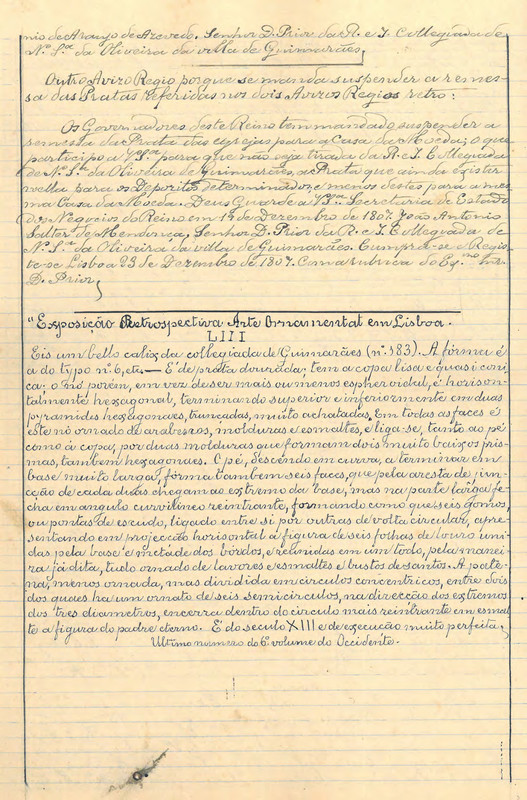 nio de Araujo de Azevedo. Senhor D. Prior da R. e I. Collegiada de
N.ª S.ra da Oliveira da villa de Guimarães.
Outro Avizo Regio porque se manda suspender a remes-
sa das Pratas referidas nos dois Avizos Regios retro:
Os Governadores deste Reino tem mandado suspender a
remessa da Prata das egrejas para a Casa da Moeda; o que
participo a V. S.ª para que não seja tirada da R. e I. Collegiada
de N.ª S.ra da Oliveira de Guimarães, a Prata que ainda existir
nella para os Depositos determinados, e menos destes para a mes-
ma Casa da Moeda. Deus Guarde a V. S.ª Secretaria de Estado
dos Negocios do Reino em 19 de Dezembro de 1807. João Antonio
Salter de Mendonça, Senhor D. Prior da R. e I. Collegiada de
N.ª S.ra da Oliveira da villa de Guimarães. Cumpra-se e Regis-
te-se Lisboa 23 de Dezembro de 1807. Com a rubrica do Ex.mo Snr.
D. Prior
"Exposição Retrospectiva Arte Ornamental em Lisboa.
LIII
Eis um bello calix da collegiada de Guimarães (n.º 383). A fórma é
a do typo n.º 6, etc — É de prata dourada; tem a copa lisa e quasi coni-
ca; o nó porém, em vez de ser mais ou menos espheroidal, é horison-
talmente hexagonal, terminando superior e inferiormente em duas
pyramides hexagonaes, truncadas, muito achatadas. Em todas as faces é
este nó ornado de arabescos, molduras e esmaltes, e liga-se, tanto ao pé
como à copa, por duas molduras que formam dois muito baixos pris-
mas, tambem hexagonaes. O pé, descendo em curva, a terminar em
base muito larga, fórma tambem seis faces, que pela aresta de junc-
cção de cada duas chegam ao extremo da base, mas na parte larga fe-
cha em angulo curvilineo reintrante, formando como que seis gomos,
ou pontas de escudo, ligado entre si por outras de volta circular, apre-
sentando em projecção horisontal a figura de seis folhas de louro uni-
das pela base e metade dos bórdos, e reunidas em um todo, pela manei-
ra já dita, tudo ornado de lavores e esmaltes e bustos de santos. A pate-
na, menos ornada, mas dividida em circulos concentricos, entre dois
dos quaes ha um ornato de seis semicirculos, na direcção dos extremos
dos tres diametros, encerra dentro do circulo mais reintrante em esmal-
te a figura do padre eterno. É do seculo XIII e de execução muito perfeita,
Ultimo numero do 6.º volume do Occidente.